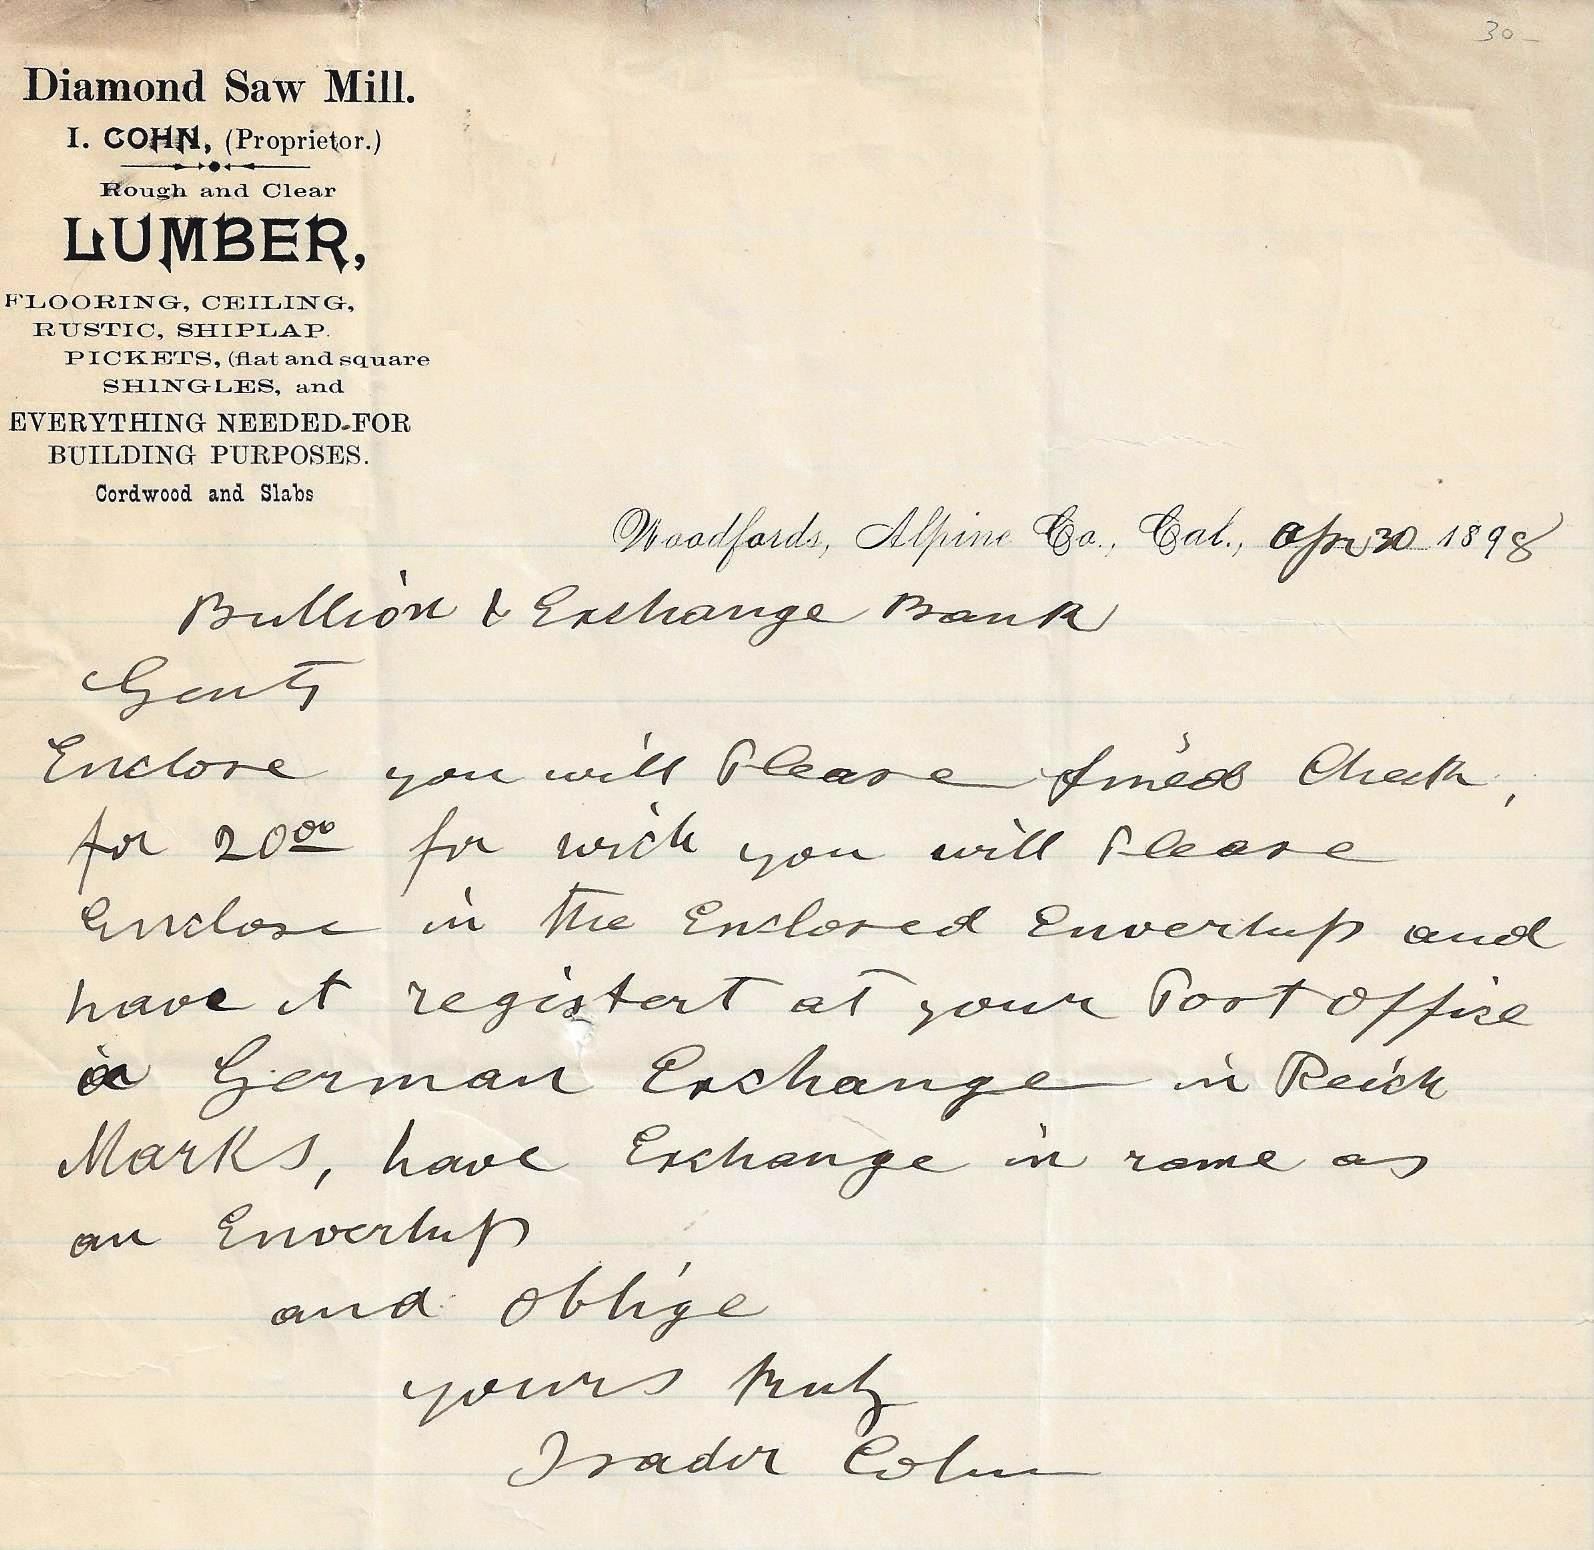 30-
Diamond Saw Mill.
I. COHN, (Proprietor.)
Rough and Clear
LUMBER,
FLOORING, CEILING,
RUSTIC, SHIPLAP.
PICKETS, (flat and square
SHINGLES, and
EVERYTHING NEEDED-FOR
BUILDING PURPOSES.
Cordwood and Slabs
Woodfords, Alpine Co., Cal., Apr 30 1898
Bullion & Exchange Bank
Gents
Enclose you will Please find Check,
for 20 00 for wich you will Please
Enclose in the Enclosed Envertup and
have it registert at your Post Office
in German Exchange in Reich
Marks, have Exchange in same as
on Envertup
and oblige
yours truly
Isador Cohn